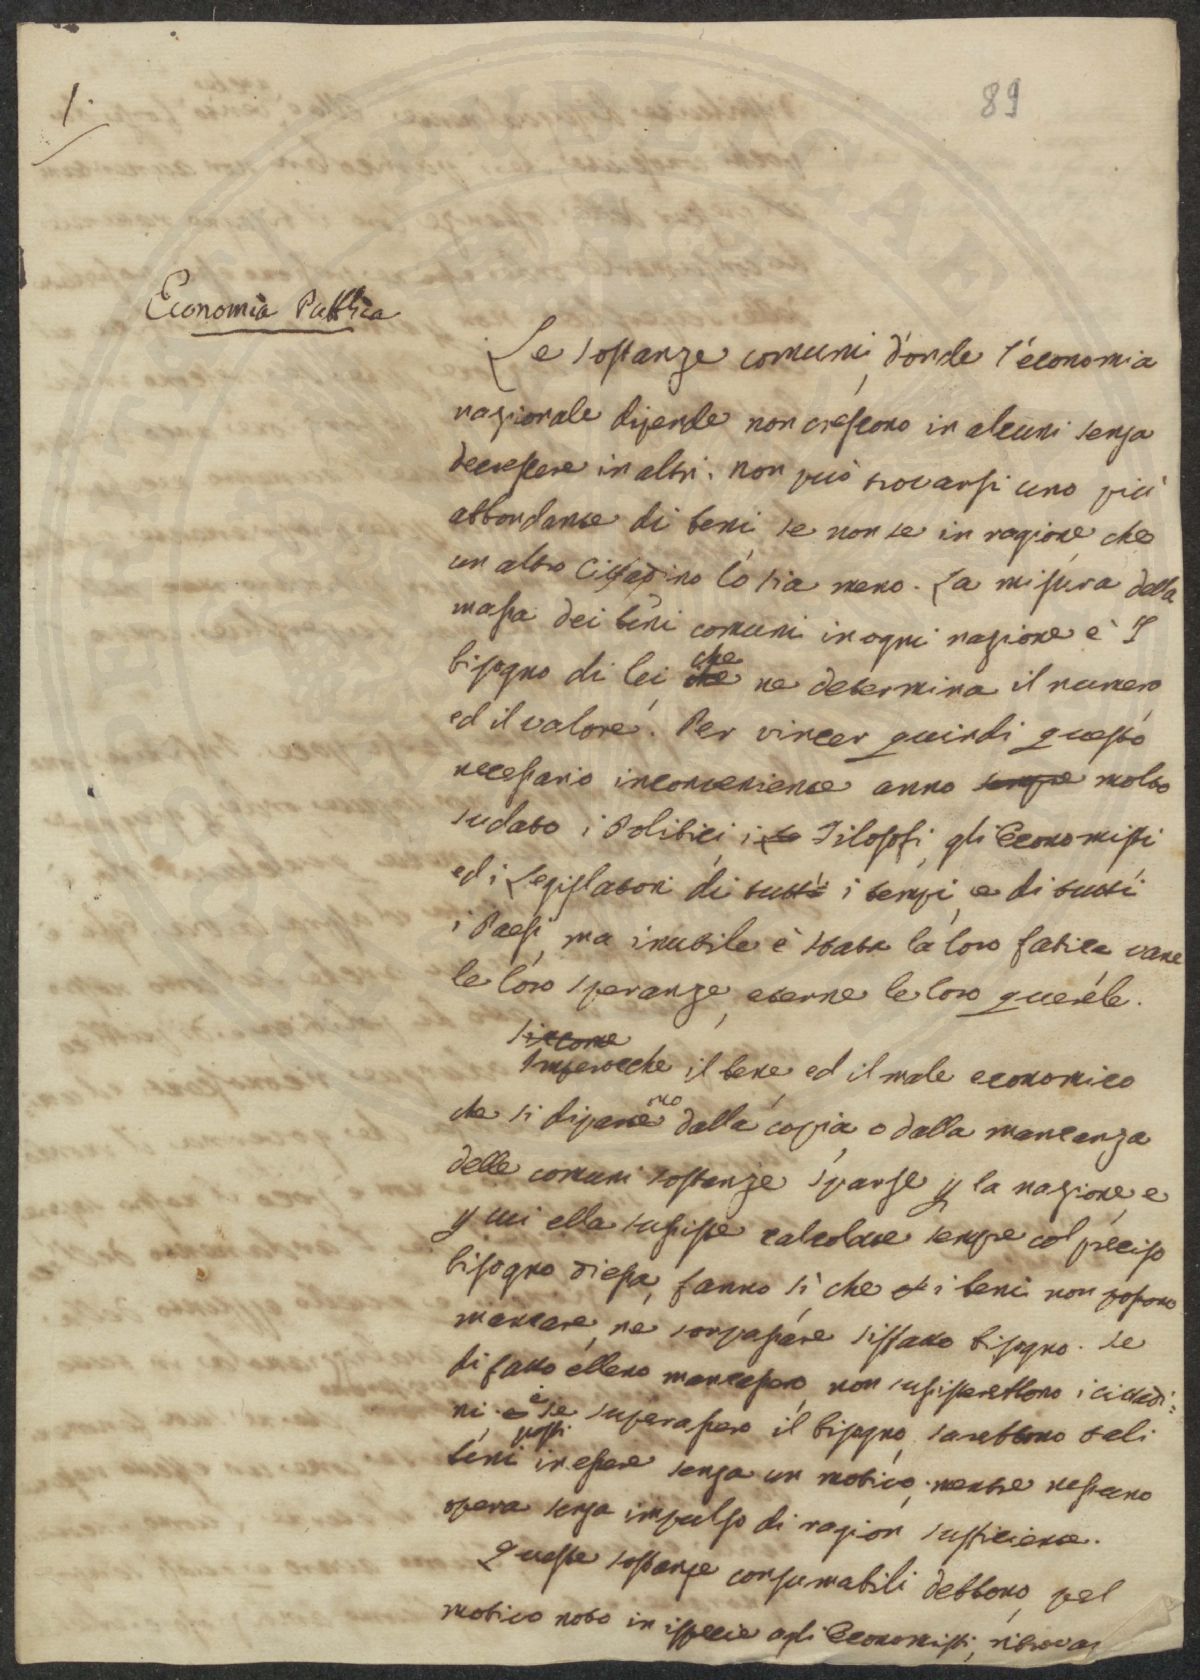 1.
89
Economia Pubblica
Le sostanze comuni, d'onde l'economia
nazionale dipende non crescono in alcuni senza
decrescere in altri: non può trovarsi uno più
abbondante di beni se non se in ragione, che
un altro Cittadino lo sia meno. La misura della
massa dei beni comuni in ogni nazione è Il
bisogno di lei, che che ne determina il numero
ed il valore. Per vincer quindi questo
necessario inconveniente anno sempre molto
sudato i Politici, i Filosofi, gli Economisti
ed i Legislatori di tutti i tempi, e di tutti
i Paesi, ma inutile è stata la loro fatica vane
le loro speranze, eterne le loro querele.
Siccome
Imperocché il bene, ed il male economico
che si dipar dalla copia, o dalla mancanza
delle comuni sostanze sparse p la nazione, e
p cui ella sussiste calcolate sempre col preciso
bisogno diessa, fanno sì, che i beni non possono
mancare, né sorpassare siffatto bisogno. Se
di fatto elleno mancassero, non sussisterebbono i cittadi=
ni: e se superassero il bisogno, sarebbono tali
beni posti in essere senza un motivo, mentre nessuno
opera senza impulso di ragion sufficiente.
Queste sostanze consumabili debbono, pel
motivo noto in ispecie agli Economisti,